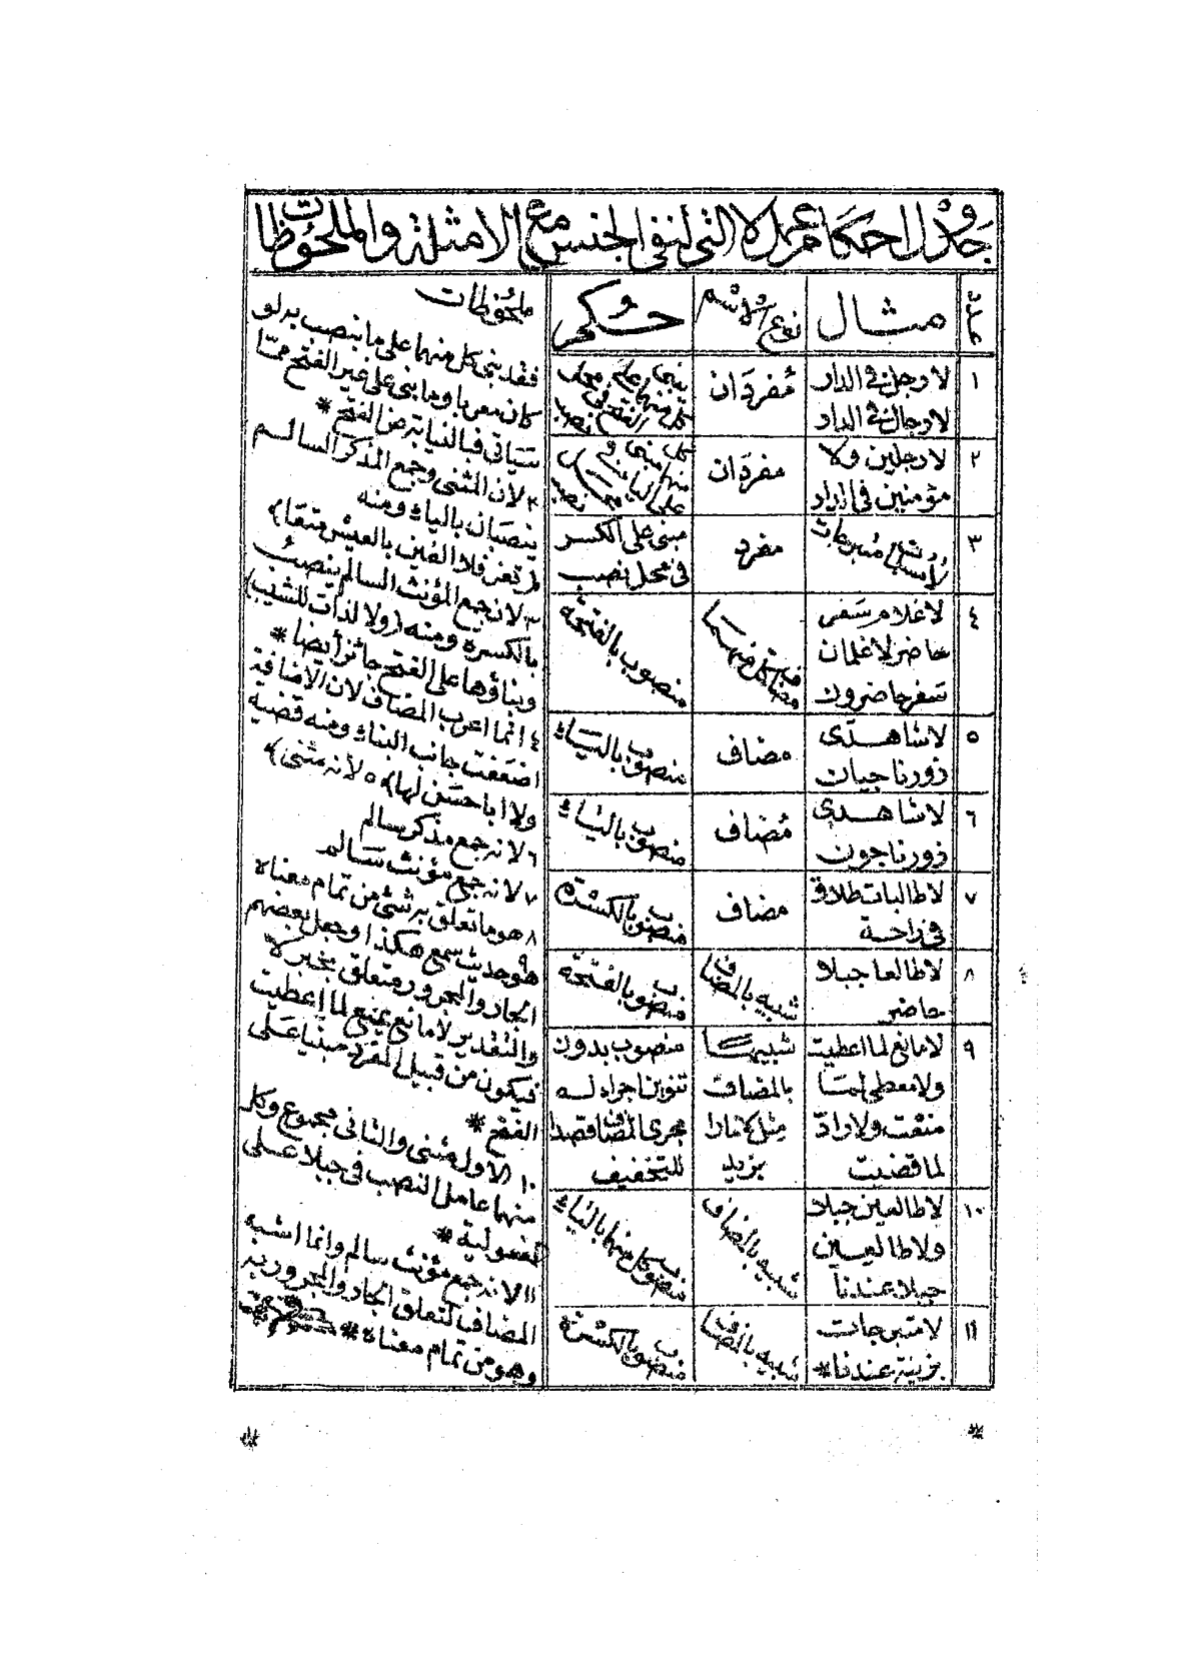 جدول احكام عمل لا التى لنفى الجنس مع الامثلة والملحوظات
عدد
مثال
نوع الاسم
حكم
ملحوظات
١
لا رجل فى الدار
لا رجال فى الدار
مفردان
يبنى
كل منهما على
الفتح فى محل
نصب
٢
لا رجلين ولا
مؤمنين فى الدار
مفردان
كل
منهما مبنى
على الياء و
محل
نصب
٣
لا متبرجات
مفرد
مبنى على الكسر
فى محل نصب
٤
لا غلام سفر
حاضر لا غلمان
سفر حاضرون
مضاف كل منهما
منصوب بالفتحة
٥
لا شاهدى
زور ناجيان
مضاف
منصوب بالياء
٦
لا شاهدى
زور ناجون
مضاف
منصوب بالياء
٧
لا طالبات طلاق
فى راحة
مضاف
منصوب بالكسرة
٨
لا طالعا جبلا
حاضر
شبيه بالمضاف
منصوب بالفتحة
٩
لا مانع لما اعطيت
ولا معطى لما
منعت ولا رادّ
لما قضيت
شبيها
بالمضاف
مثل لا مارا
بزيد
منصوب بدون
تنوين اجراء له
مجرى المضاف قصدا
للتخفيف
١٠
لا طالعين جبلا
ولا طالعين
جبلا عندنا
شبيه بالمضاف
منصوب كل منهما بالياء
١١
لا متبرجات
بزينة عندنا*
شبيه بالمضاف
منصوب بالكسرة
فقد بنى كل منهما على ما ينصب به لو
كان معربا وما بنى على غير الفتح مما
سيأتى فبالنيابة عن الفتح *
٢ لان المثنى وجمع المذكر السالم
ينصبان بالياء ومنه
(تعز فلا الفين بالعيش متعا)
٣ لان جمع المؤنث السالم ينصب
بالكسرة ومنه (ولا لذات للشيب)
وبناؤها على الفتح جائز أيضا *
٤ انما اعرب المضاف لان الاضافة
اضعفت جانب البناء ومنه قضية
ولا ابا حسن لها) ٥ لانه مثنى)
٦ لانه جمع مذكر سالم
٧ لانه جمع مؤنث سالم
٨ هو ما تعلق به شئ من تمام معناه
٩ هو حديث سمع هكذا وجعل بعضهم
الجار والمجرور متعلق بخبر لا
والتقدير لا مانع يمنع لما اعطيت
فيكون من قبيل المفرد مبنيا على
الفتح *
١٠ الاول مثنى والثانى مجموع وكل
منهما عامل النصب فى جبلا على
المفعولية *
١١ لانه جمع مؤنث سالم وانما اشبه
المضاف لتعلق الجار والمجرور به
وهو من تمام معناه *